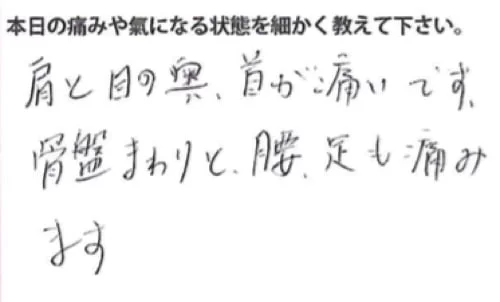 本日の痛みや氣になる状態を細かく教えて下さい。
肩と目の奥、首が痛いです。
骨盤まわりと、腰、足も痛み
ます